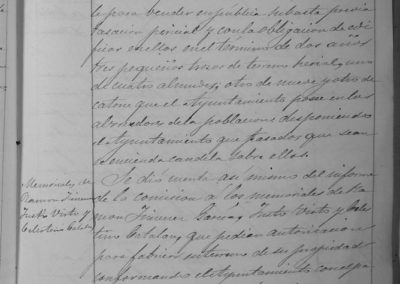 le para vender en publica subasta previa
tasacion pericial y con la obligacion de edi
ficar en ellos en el término de dos años
tres pequeños trozos de terreno herial, uno
de cuatro almudes, otro de nueve y otro de
catorce que el Ayuntamiento posee en los
alrededores de la poblacion disponiendo
el Ayuntamiento que tasados que sean
se encienda candela sobre ellos.
Memoriales de
Ramon Jimenez
Justo Visto y
Celestino Catalan
Se dió cuenta asi mismo del informe
de la comision á los memoriales de Ra
mon Jimenez Justo Visto y Celes
tino Catalan, que pedian autorizacion
para fabricar en terreno de su propiedad
conformandose el Ayuntamiento con el pa